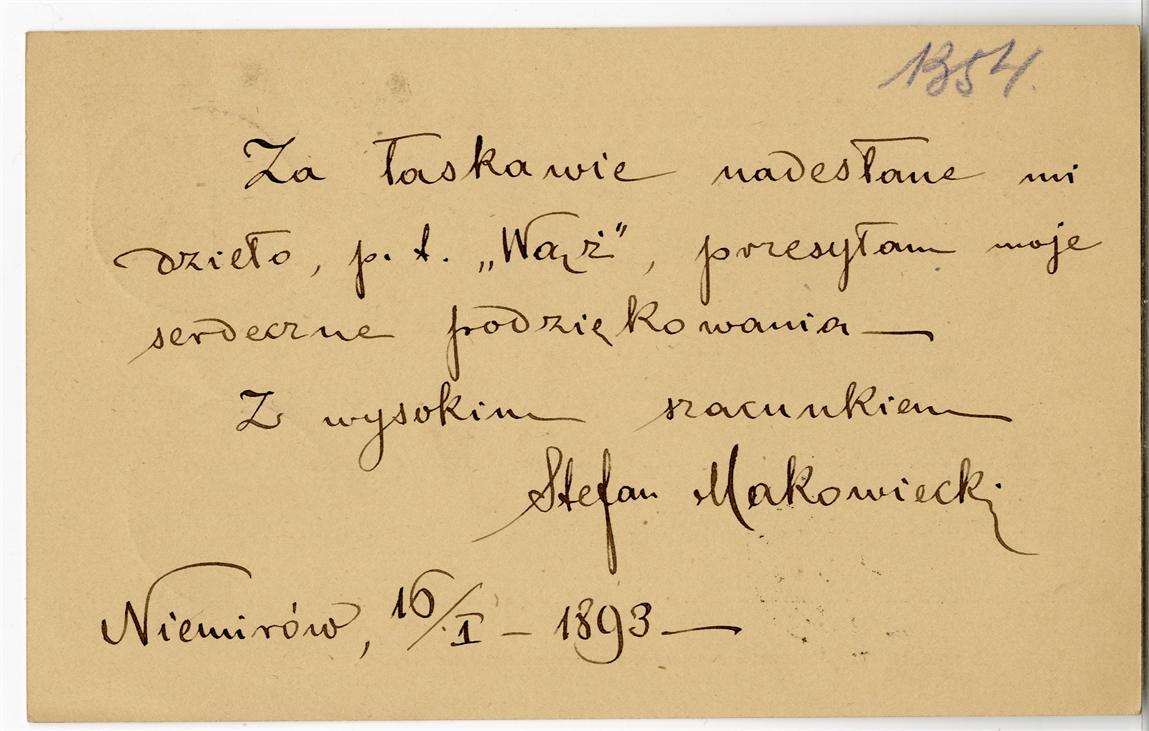 1354.
Za łaskawie nadesłane mi
dzieło, p. t. „Wąż”, przesyłam moje
serdeczne podziękowania —
Z wysokim szacunkiem
Stefan Makowiecki
Niemirów, 16/I – 1893 —